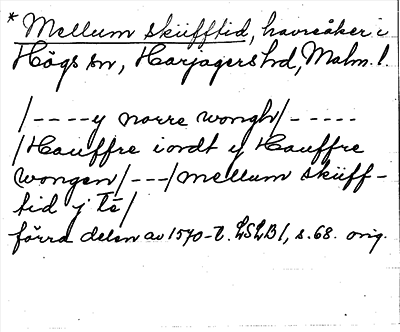 * Mellum skiifftid, havreåker i
Högs sn, Harjagers hd, Malm. l.
/----y norre wongh/-----
/Hauffre iordt y Hauffre
wongen/---/mellum skiiff-
tid j té/
förra delen av 1570-t. LSLB 1, s. 68. orig.